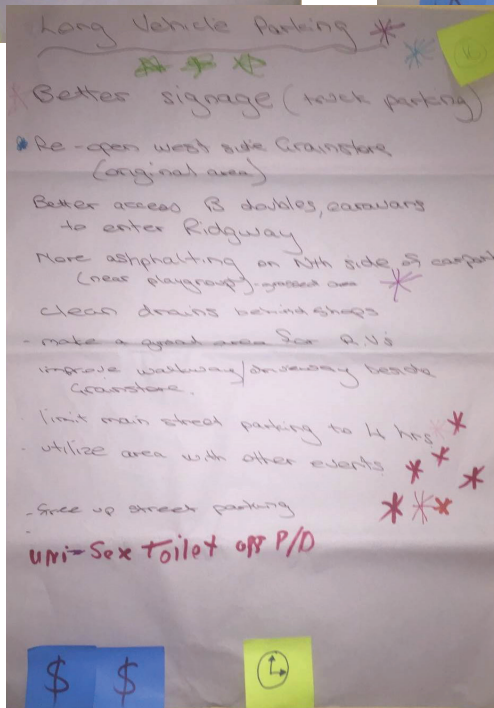 Long Vehicle Parking
Better signage (truck parking)
Re-open west side Grainstore
(original area)
Better access B doubles, caravans
to enter Ridgway
More ashphalting on Nth side of carpark
(near playgroup) - grassed area
clean drains behind shops
- make a good area for R.V's
improve walkway/driveway beside
Grainstore.
limit main street parking to 4 hrs
utilize area with other events
- free up street parking
uni-Sex Toilet opp P/D
$ $